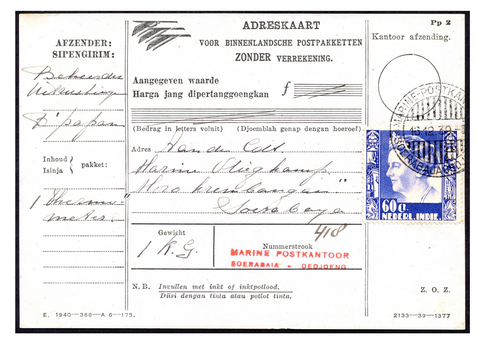 Pp 2
ADRESKAART
VOOR BINNENLANDSCHE POSTPAKKETTEN
ZONDER VERREKENING.
AFZENDER:
SIPENGIRIM:
Kantoor afzending.
Beheerder
B'papan
Aangegeven waarde
Harga jang dipertanggoengkan
f
(Bedrag in letters voluit) (Djoemblah genap dengan hoeroef)
Inhoud
Isinja
pakket:
1 Thermo-
meter.
Adres Aan den Cdt.
Marine Vliegkamp
"Moro krembangan"
Soerabaja
MARINE-POSTKAN
60 c.
NEDERL. INDIE.
Gewicht
1 K.G.
Nummerstrook
418
MARINE POSTKANTOOR
SOERABAIA - OEDJOENG
N. B. Invullen met inkt of inktpotlood.
Diisi dengan tinta atau potlot tinta.
Z. O. Z.
E. 1940—368—A 6—175.
2133—39—1377